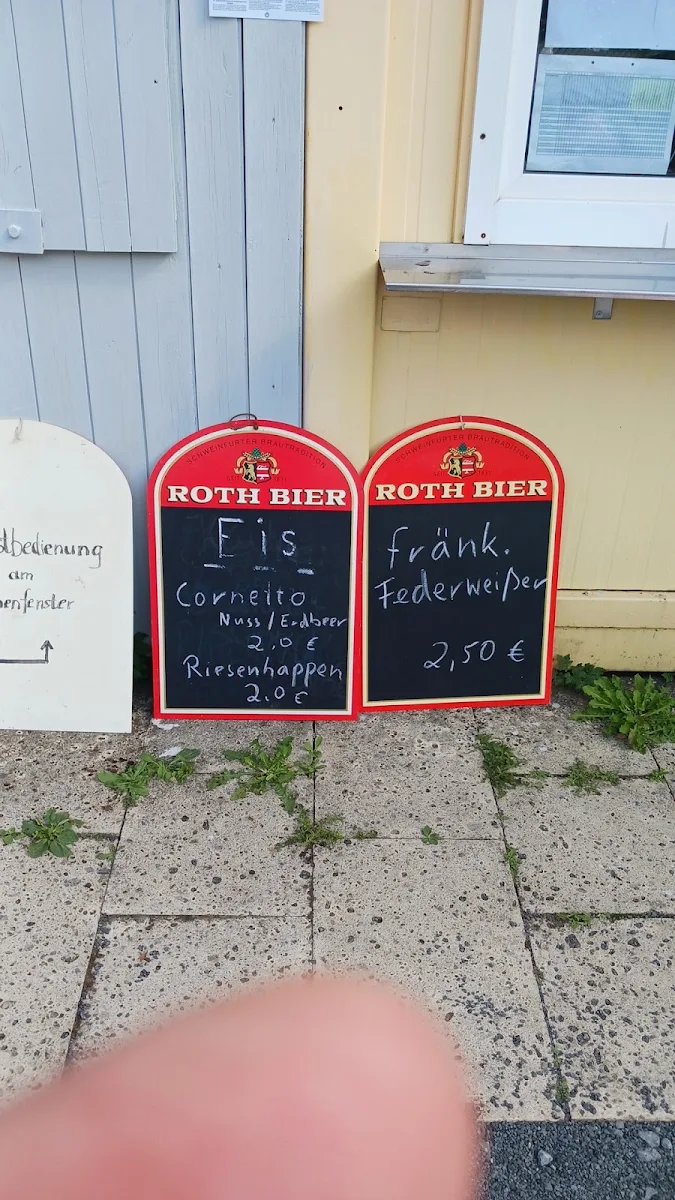 stbedienung
am
enfenster
SCHWEINFURTER BRAUTRADITION
ROTH BIER
Eis
Cornetto
Nuss / Erdbeer
2.0 €
Riesenhappen
2.0 €
SCHWEINFURTER BRAUTRADITION
ROTH BIER
fränk.
Federweißer
2,50 €